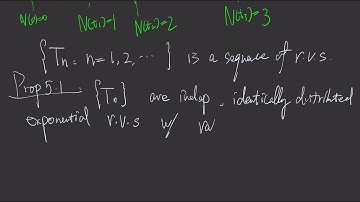 N(0)=0 N(t₁)=1 N(t₂)=2 N(t₃)=3
{Tₙ : n=1, 2, ...} is a sequence of r.v.s.
Prop 5.1. {Tₙ} are indep, identically distributed
exponential r.v.s w/